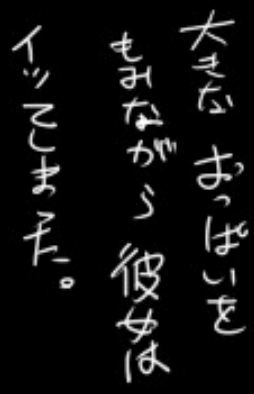 大きな おっぱいを
もみながら 彼女は
イッてしまった。